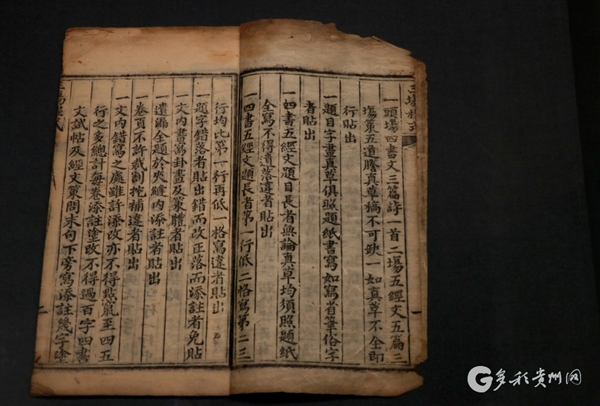 一頭場四書文三篇詩一首二場五經文五篇三
塲策五道謄真草稿不可缺一如真草不全即
行貼出
一題目字畫真草俱照題紙書寫如寫省筆俗字
者貼出
一四書五經文題目長者無論真草均須照題紙
全寫不得遺落違者貼出
一四書五經文題長者第一行低二格寫第二三
行均比第一行再低一格寫違者貼出
一題字錯落者貼出錯而改正落而添註者免貼
文內書寫卦畫及篆體者貼出
一遺漏全題於夾縫內添註者貼出
一卷頁不許裁割挖補違者貼出
一文內錯寫之處雖許添改亦不得
至四五
行之多總計每卷添註塗改不得過百字四書
文試帖及經文策問末句下旁寫添註幾字塗
二
多彩贵州网